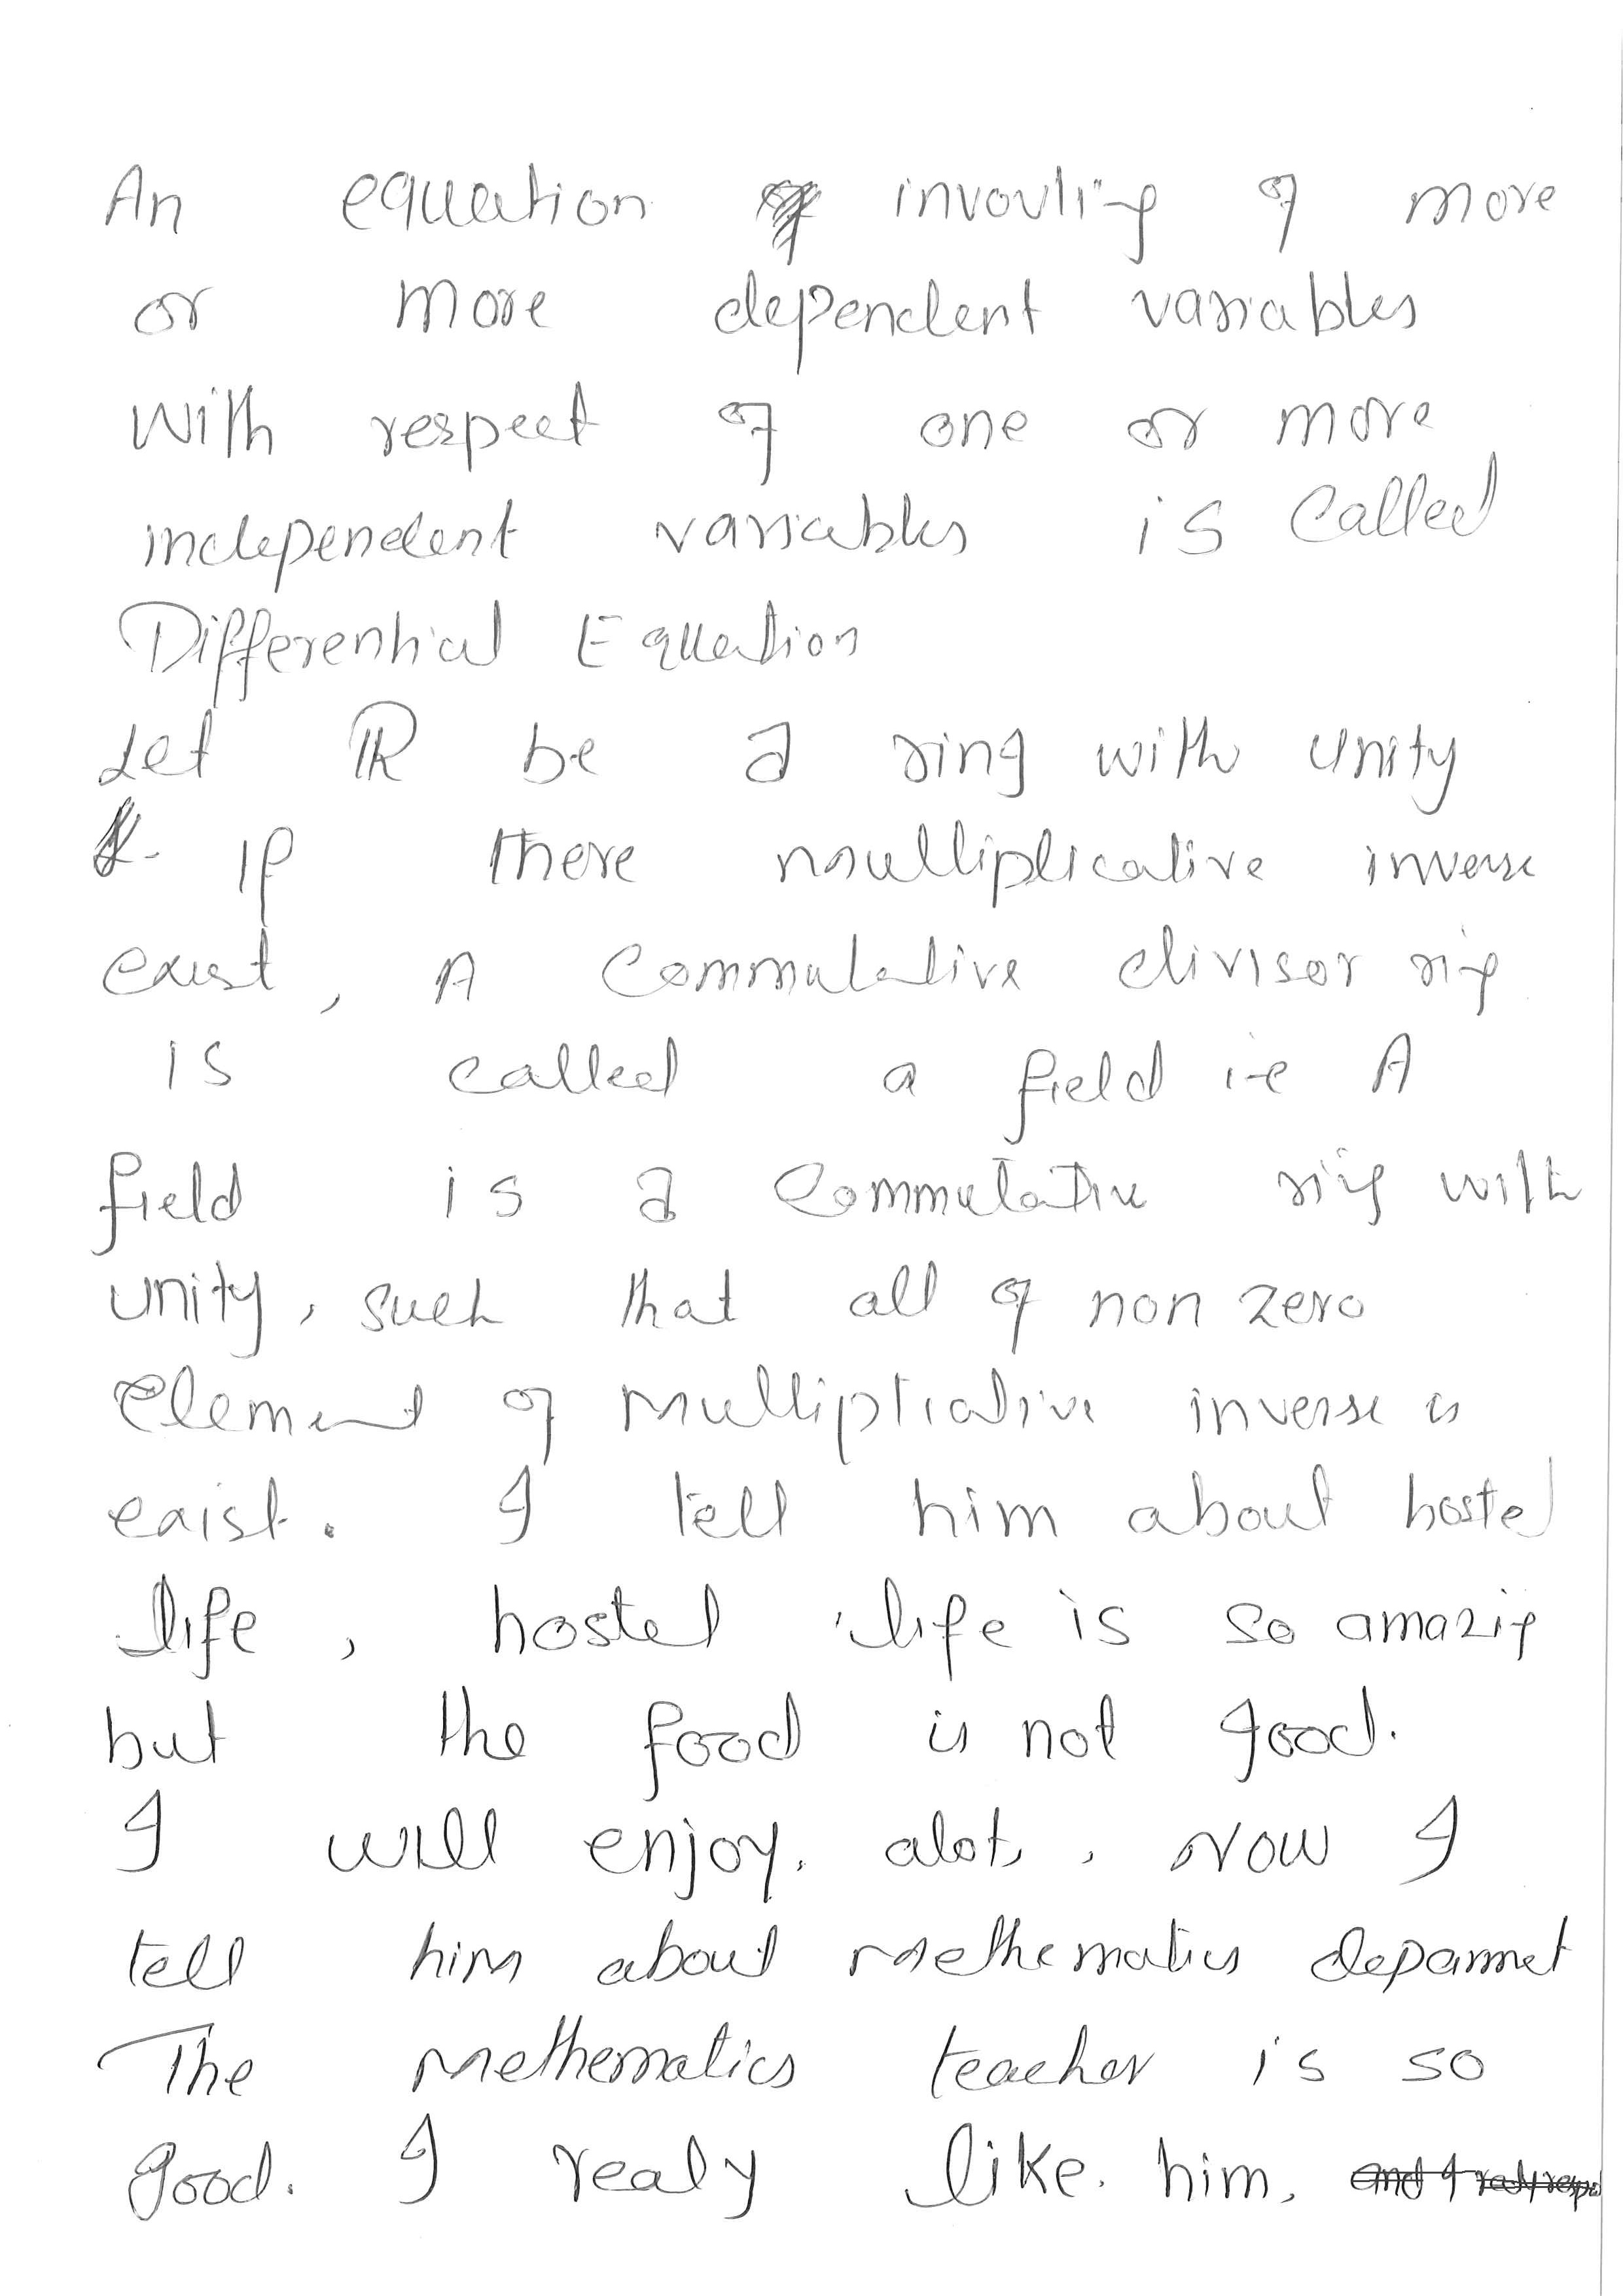 An equation invovling of more
or more dependent variables
with respect of one or more
independent variables is called
Differential Equation
Let R be a ring with unity
If there multiplicative inverse
exist, A commutative divisor ring
is called a field i-e A
field is a commutative ring with
unity, such that all of non zero
element of multiplicative inverse is
exist. I tell him about hostel
life, hostel life is so amazing
but the food is not good.
I will enjoy. alot, . Now I
tell him about mathematics
The Mathematics teacher is so
good. I realy like. him. and I realy